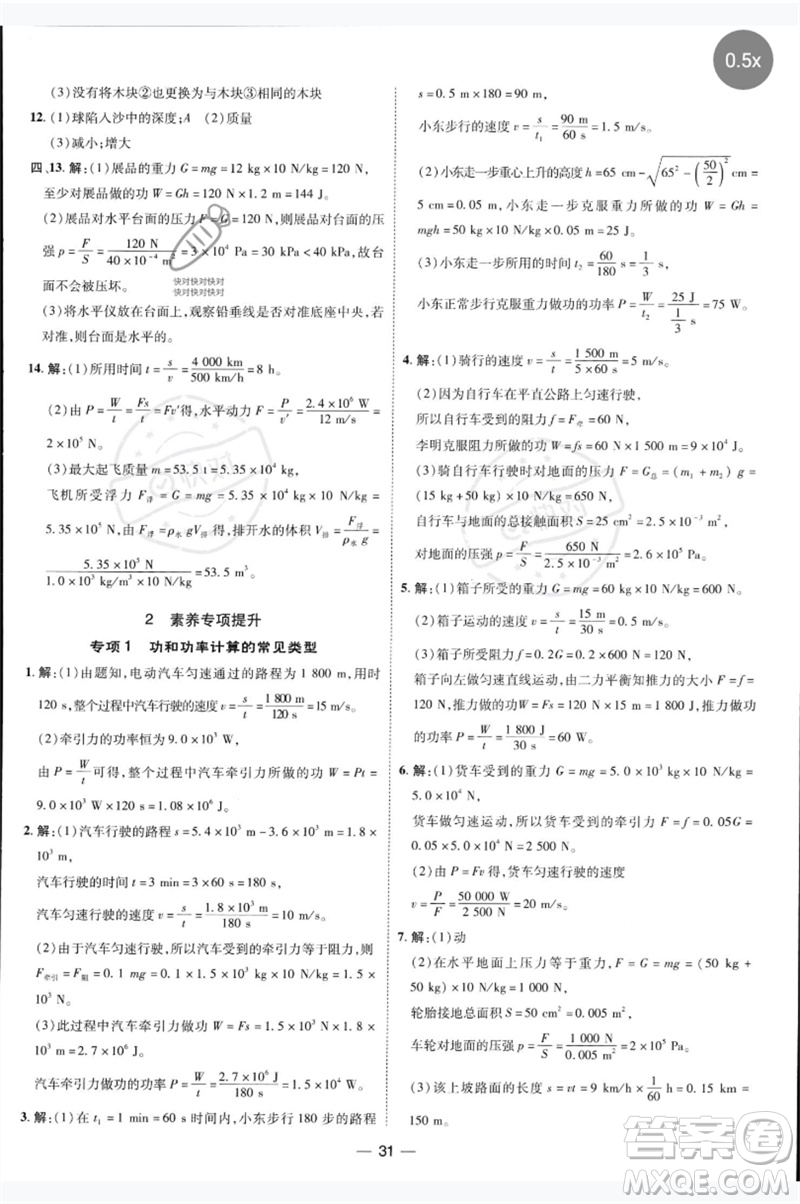 0.5x
(3)没有将木块②也更换为与木块③相同的木块
12. (1)球陷入沙中的深度;A (2)质量
(3)减小;增大
四、13. 解:(1)展品的重力 G=mg=12 kg×10 N/kg=120 N,
至少对展品做的功 W=Gh=120 N×1.2 m=144 J。
(2)展品对水平台面的压力 F=G=120 N,则展品对台面的压
强 p=F/S=120 N/(40×10⁻⁴ m²)=3×10⁴ Pa=30 kPa<40 kPa,故台
面不会被压坏。
快对快对快对
快对快对快对
(3)将水平仪放在台面上,观察铅垂线是否对准底座中央,若
对准,则台面是水平的。
14. 解:(1)所用时间 t=s/v=4 000 km/(500 km/h)=8 h。
(2)由 P=W/t=Fs/t=Fv′得,水平动力 F=P/v′=2.4×10⁶ W/(12 m/s)=
2×10⁵ N。
(3)最大起飞质量 m=53.5 t=5.35×10⁴ kg,
飞机所受浮力 F浮=G=mg=5.35×10⁴ kg×10 N/kg=
5.35×10⁵ N,由 F浮=ρ水gV排得,排开水的体积 V排=F浮/(ρ水g)=
5.35×10⁵ N/(1.0×10³ kg/m³×10 N/kg)=53.5 m³。
2 素养专项提升
专项1 功和功率计算的常见类型
1. 解:(1)由题知,电动汽车匀速通过的路程为 1 800 m,用时
120 s,整个过程中汽车行驶的速度 v=s/t=1 800 m/120 s=15 m/s。
(2)牵引力的功率恒为 9.0×10³ W,
由 P=W/t可得,整个过程中汽车牵引力所做的功 W=Pt=
9.0×10³ W×120 s=1.08×10⁶ J。
2. 解:(1)汽车行驶的路程 s=5.4×10³ m-3.6×10³ m=1.8×
10³ m,
汽车行驶的时间 t=3 min=3×60 s=180 s,
汽车匀速行驶的速度 v=s/t=1.8×10³ m/180 s=10 m/s。
(2)由于汽车匀速行驶,所以汽车受到的牵引力
F牵引=F阻=0.1 mg=0.1×1.5×10³ kg×10 N/kg=1.5×
10³ N。
(3)此过程中汽车牵引力做的功 W=Fs=1.5×10³ N×1.8×
10³ m=2.7×10⁶ J,
汽车牵引力做功的功率 P=W/t=2.7×10⁶ J/180 s=1.5×10⁴ W。
3. 解:(1)在 t₁=1 min=60 s 时间内,小东步行 180 步的路程
s=0.5 m×180=90 m,
小东步行的速度 v=s/t₁=90 m/60 s=1.5 m/s。
(2)小东走一步重心上升的高度 h=65 cm-√(65²-(50/2)²) cm=
5 cm=0.05 m,小东走一步克服重力所做的功 W=Gh=
mgh=50 kg×10 N/kg×0.05 m=25 J。
(3)小东走一步所用的时间 t₂=60/180 s=1/3 s,
小东正常步行克服重力做功的功率 P=W/t₂=25 J/(1/3 s)=75 W。
4. 解:(1)骑行的速度 v=s/t=1 500 m/(5×60 s)=5 m/s。
(2)因为自行车在平直公路上匀速行驶,
所以自行车受到的阻力 f=F牵=20 N,
李明克服阻力所做的功 W=fs=20 N×1 500 m=3×10⁴ J。
(3)骑自行车行驶时对地面的压力 F=G总=(m₁+m₂)g=
(15 kg+50 kg)×10 N/kg=650 N,
自行车与地面的总接触面积 S=25 cm²=2.5×10⁻³ m²,
对地面的压强 p=F/S=650 N/(2.5×10⁻³ m²)=2.6×10⁵ Pa。
5. 解:(1)箱子的重力 G=mg=60 kg×10 N/kg=600 N。
(2)箱子运动的速度 v=s/t=15 m/30 s=0.5 m/s。
(3)箱子所受阻力 f=0.2G=0.2×600 N=120 N,
箱子向左做匀速直线运动,由二力平衡知推力的大小 F=f=
120 N,推力做的功 W=Fs=120 N×15 m=1 800 J,推力做功
的功率 P=W/t=1 800 J/30 s=60 W。
6. 解:(1)货车受到的重力 G=mg=5.0×10³ kg×10 N/kg=
5.0×10⁴ N,
货车做匀速运动,所受的牵引力 F=f=0.05G=
0.05×5.0×10⁴ N=2 500 N。
(2)由 P=Fv 得,货车匀速行驶的速度
v=P/F=50 000 W/2 500 N=20 m/s。
7. 解:(1)动
(2)在水平地面上压力等于重力,所以 F=G=mg=(50 kg+
50 kg)×10 N/kg=1 000 N,
轮胎接地总面积 S=50 cm²=0.005 m²,
车轮对地面的压强 p=F/S=1 000 N/0.005 m²=2×10⁵ Pa。
(3)该上坡路面的长度 s=vt=9 km/h×1/60 h=0.15 km=
150 m,
31
答案卷
MXQE.COM